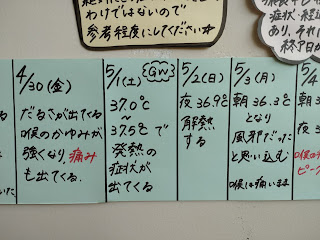 わけではないので
参考程度にしてください☆
症状・経過
あり、それに
終了日が
4/30(金)
だるさが出てくる
喉のかゆみが
強くなり、痛み
も出てくる。
5/1(土)
GW
37.0℃
~
37.5℃で
発熱の
症状が
出てくる
5/2(日)
夜36.9℃
解熱
する
5/3(月)
朝36.3℃
となり
風邪だった
と思い込む
喉は痛いまま
5/4
朝3
夜
喉の
ピーク